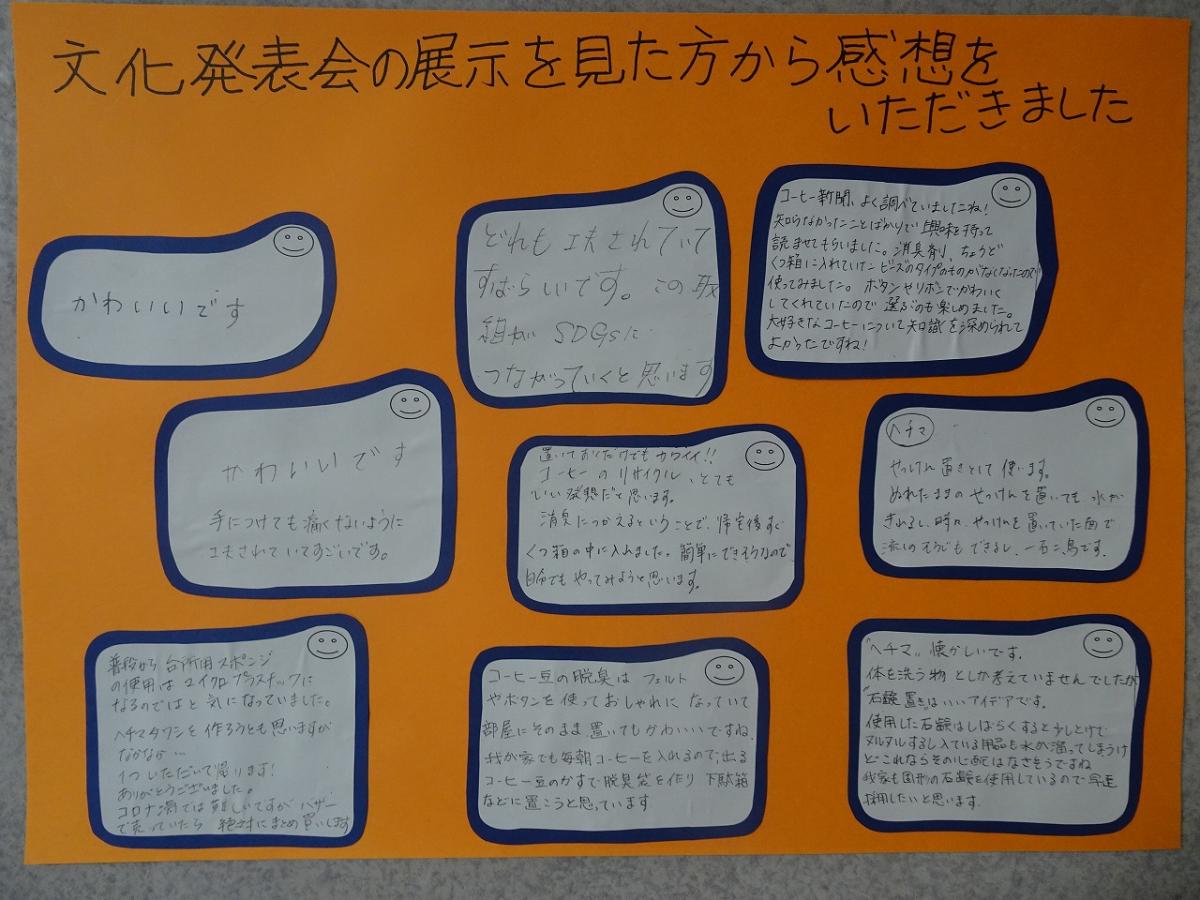 文化発表会の展示を見た方から感想を
いただきました
かわいいです
どれも工夫されていて
すばらしいです。この取
組が SDGsに
つながっていくと思います
コーヒー新聞、よく調べていましたね!
知らなかったことばかりで興味を持って
読ませてもらいました。消臭剤、ちょうど
くつ箱に入れていたビーズのタイプのものがなくなったので
使ってみました。ボタンやリボンでかわいく
してくれていたので選ぶのも楽しめました。
大好きなコーヒーについて知識を深められて
よかったですね!
かわいいです
手につけても痛くないように
工夫されていてすごいです。
置いておくだけでもカワイイ!!
コーヒーのリサイクル、とても
いい発想だと思います。
消臭につかえるということで、帰宅後すぐ
くつ箱の中に入れました。簡単にできそうなので
自分でもやってみようと思います。
ヘチマ
せっけん置きとして使います。
ぬれたままのせっけんを置いても水が
きれるし、時々、せっけんを置いていた面で
流しのそうじもできるし、一石二鳥です。
普段から台所用スポンジ
の使用はマイクロプラスチックに
なるのではと気になっていました。
ヘチマタワシを作ろうとも思いますが
なかなか…
1ついただいて帰ります!
ありがとうございました。
コロナ禍では難しいですがバザー
で売っていたら絶対にまとめ買いします
コーヒー豆の脱臭は フェルト
やボタンを使っておしゃれになっていて
部屋にそのまま置いてもかわいいですね。
我が家でも毎朝コーヒーを入れるので、出る
コーヒー豆のかすで脱臭袋を作り 下駄箱
などに置こうと思っています
"ヘチマ"懐かしいです。
体を洗う物としか考えていませんでしたが
"石鹸置き"はいいアイデアです。
使用した石鹸はしばらくすると少しとけて
ヌルヌルするし入ている用品も水が溜ってしまうけ
ど、これならその心配はなさそうですね
我家も固形の石鹸を使用しているので早速
採用したいと思います。